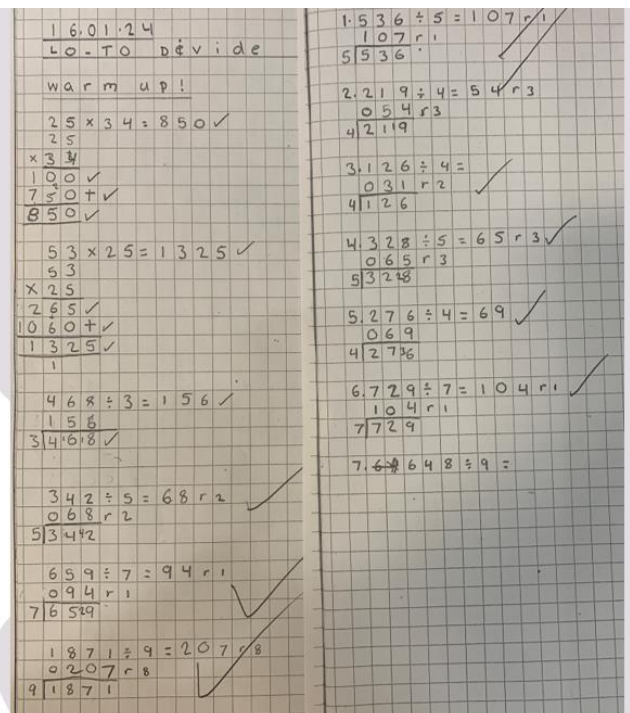 16.01.24
LO-TO Devide
warm up!
25 × 34 = 850 ✓
25
× 34
100 ✓
750 + ✓
850 ✓
53 × 25 = 1325 ✓
53
× 25
265 ✓
1060 + ✓
1325 ✓
1
468 ÷ 3 = 156 ✓
156
3 4 ¹6 ¹8 ✓
342 ÷ 5 = 68 r 2
068 r 2
5 3 4 ⁴2
659 ÷ 7 = 94 r 1
094 r 1
7 6 5 ²9
1871 ÷ 9 = 207 r 8
0207 r 8
9 1871
1. 536 ÷ 5 = 107 r 1
107 r 1
5 536
2. 219 ÷ 4 = 54 r 3
054 r 3
4 2 1 ¹9
3. 126 ÷ 4 =
031 r 2
4 126
4. 328 ÷ 5 = 65 r 3 ✓
065 r 3
5 3 2 ²8
5. 276 ÷ 4 = 69 ✓
069
4 2 7 ³6
6. 729 ÷ 7 = 104 r 1
104 r 1
7 729
7. 648 ÷ 9 =